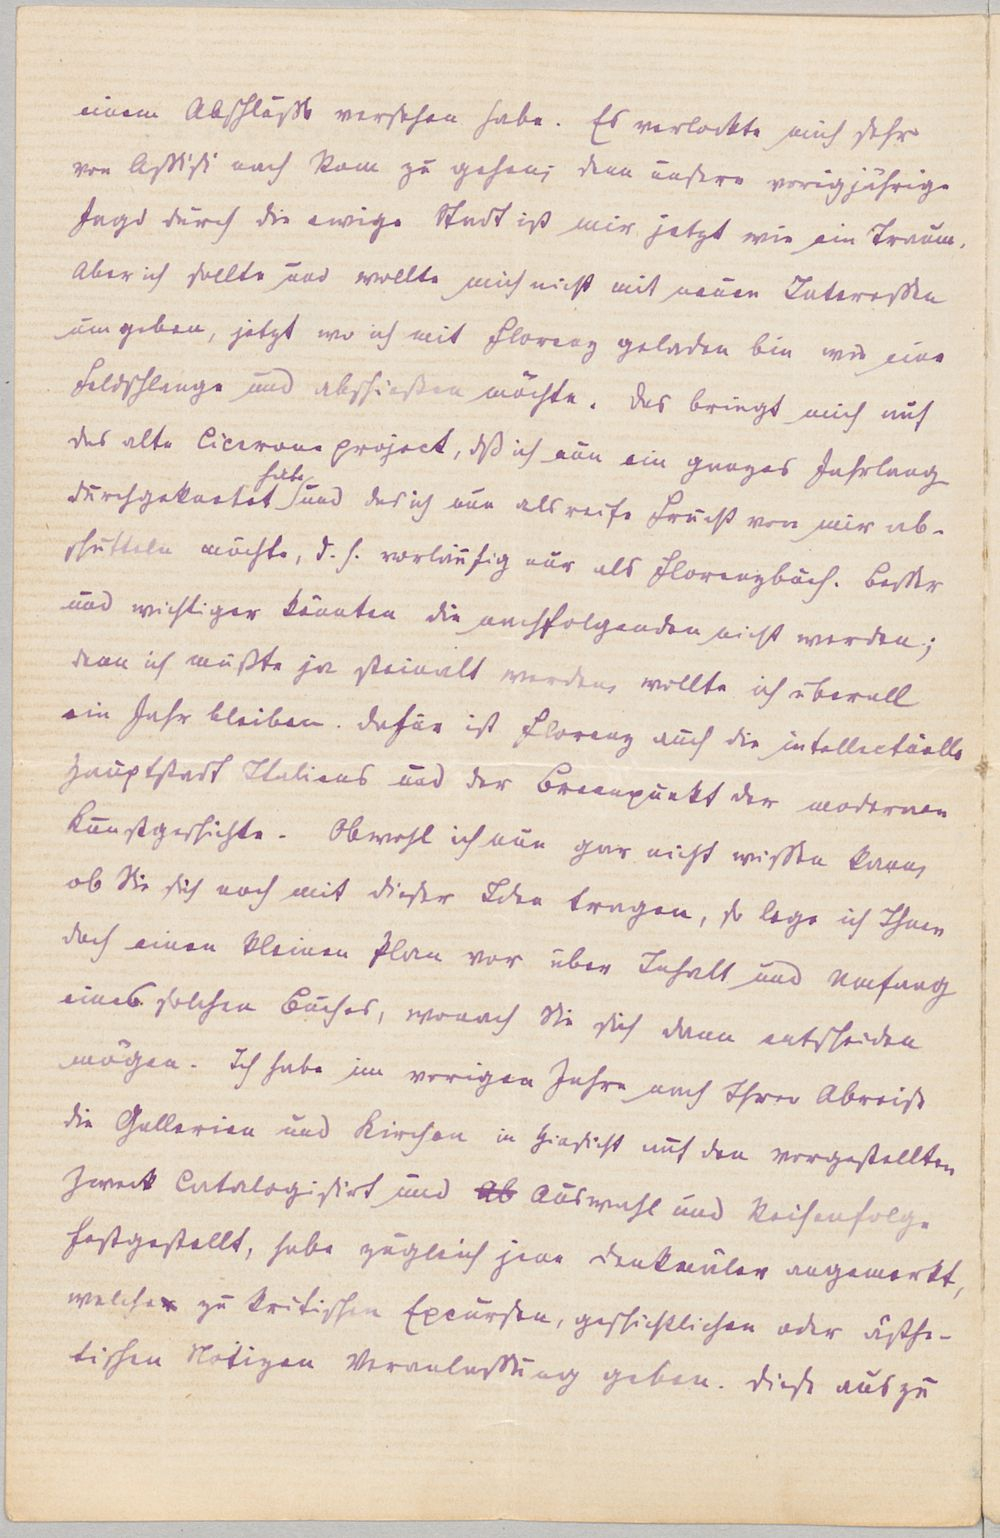 einem Abschlusse versehen habe. Es verlockte mich sehr
von Assisi nach Rom zu gehen; denn unsere vorigjährige
Jagd durch die ewige Stadt ist mir jetzt wie ein Traum.
Aber ich sollte und wollte mich nicht mit neuen Interessen
umgeben, jetzt wo ich mit Florenz geladen bin wie eine
Feldschlange und abschießen möchte. Das bringt mich auf
das alte Ciceroneproject, dß ich nun ein ganzes Jahrlang
durchgeknetet habe und das ich nun als reife Frucht von mir ab-
schütteln möchte, d. h. vorläufig nur als Florenzbuch. Besser
und wichtiger könnten die nachfolgenden nicht werden;
denn ich müßte ja steinalt werden, wollte ich überall
ein Jahr bleiben. Dafür ist Florenz auch die intellectuelle
Hauptstadt Italiens und der Brennpunkt der modernen
Kunstgeschichte. Obwohl ich nun gar nicht wissen kann,
ob Sie sich noch mit dieser Idee tragen, so lege ich Ihnen
doch einen kleinen Plan vor über Inhalt und Umfang
eines solchen Buches, wonach Sie sich dann entscheiden
mögen. Ich habe im vorigen Jahre nach Ihrer Abreise
die Gallerien und Kirchen in Hinsicht auf den vorgestellten
Zweck Catalogisirt und ab Auswahl und Reihenfolge
festgestellt, habe zugleich jene Denkmäler angemerkt,
welche zu kritischen Excursen, geschichtlichen oder ästhe-
tischen Notizen Veranlassung geben. Diese auszu